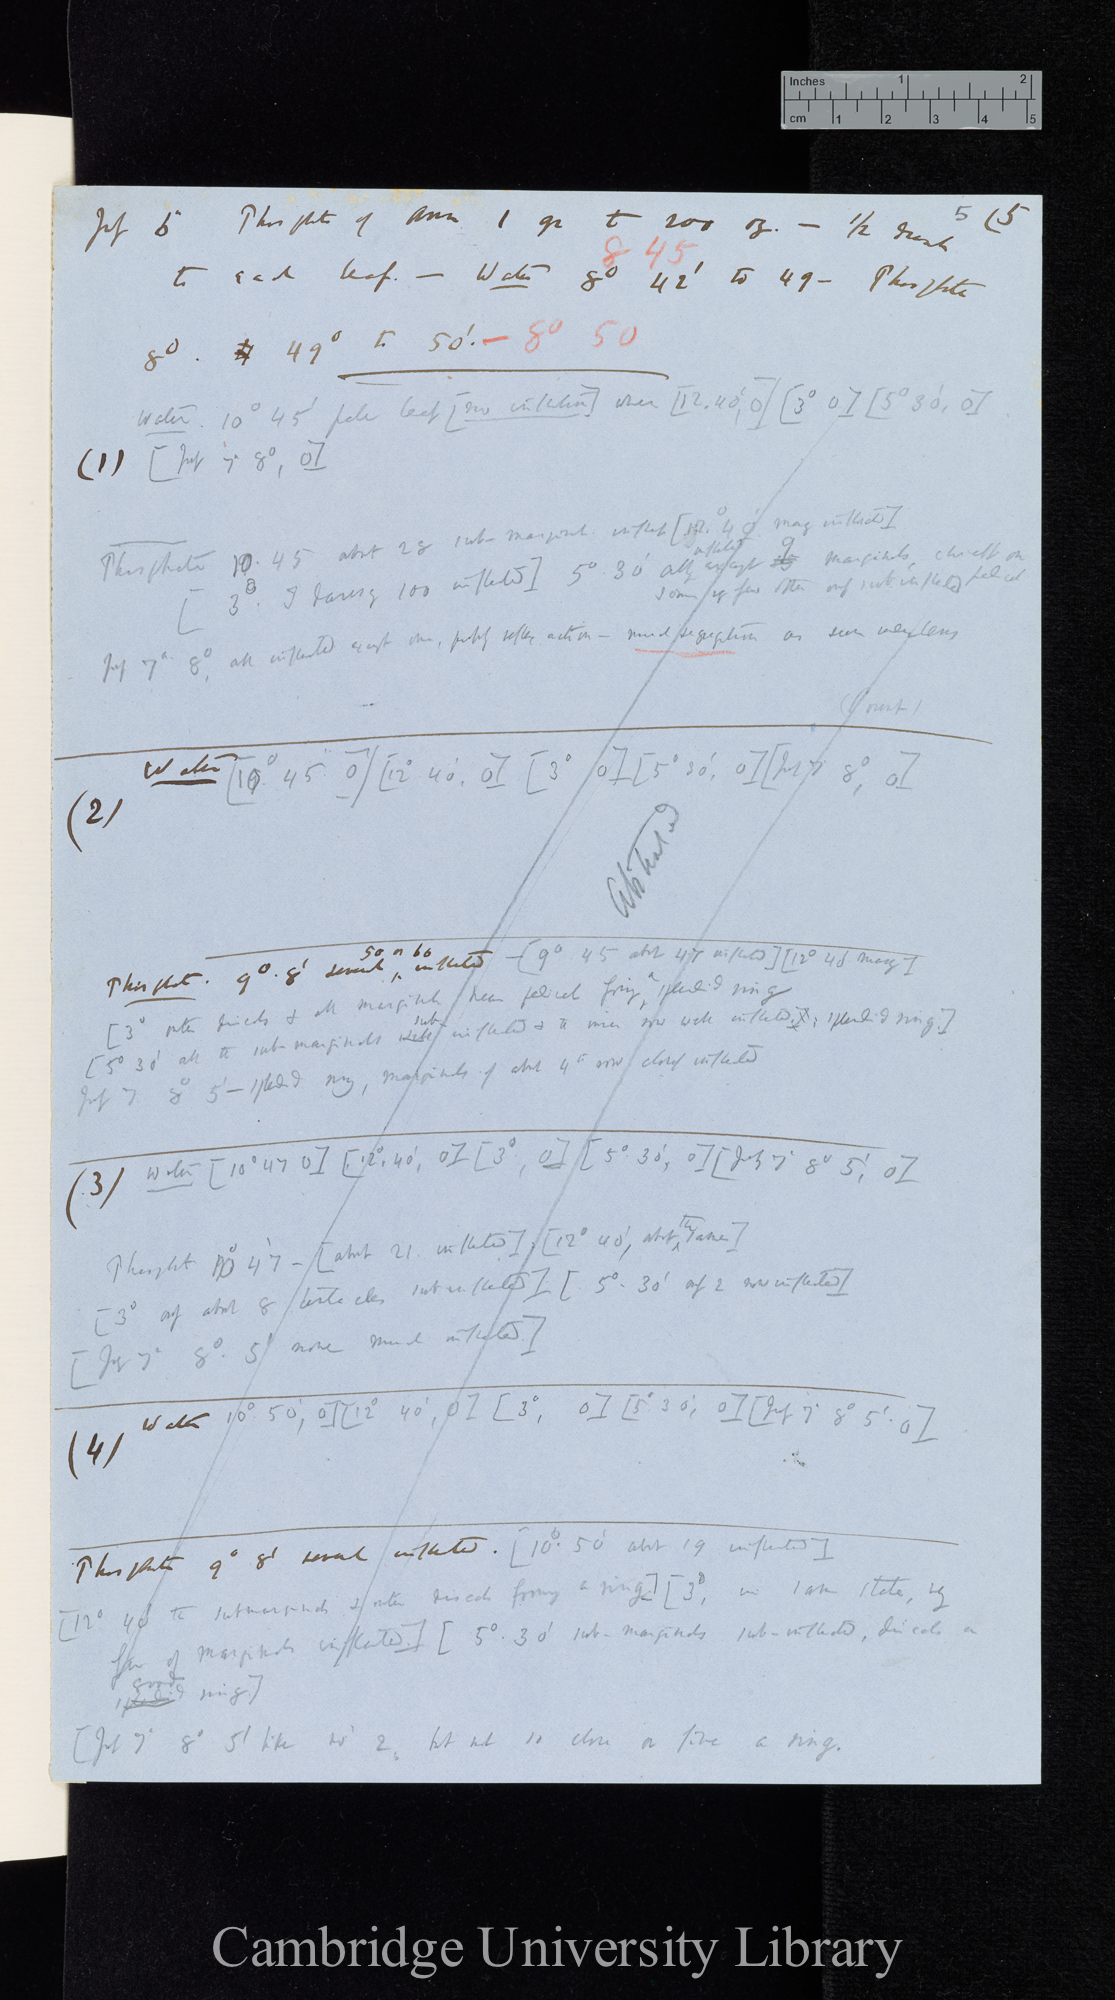 Inches 1 2
cm 1 2 3 4 5
5 (5
July 6 Phosphate of Amm 1 gr to 200 oz. — 1/2 drachm
8 45
to each leaf. — Water 8° 42' to 49 — Phosphate
8°. 49° to 50'. — 8° 50
Water. 10° 45' pale leaf [no inflection] when [12.40', 0] [3° 0] [5° 30', 0]
(1) [July 7 8°, 0]
Phosphate 10.45 about 28 sub-marginal inflect [12.° 40' many inflected]
inflected 9
[3°. I daresay 100 inflected] 5°.30' all except marginals, chiefly on
some of few other only sub inflected
July 7th 8°, all inflected except one, probably reflex action — much segregation as seen
(2) Water [10° 45' 0] [12° 40', 0] [3° 0] [5° 30', 0] [July 7 8°, 0]
Abstracted
50 or 60
Phosphate. 9°.8' several inflected — [9° 45 about 47 inflected] [12° 40 many]
[3° outer discals & all marginals near pedicel forming a splendid ring
sub
[5° 30' all the sub-marginals well inflected & the inner now well inflected; splendid ring.]
July 7 8° 5' — splendid ring, marginals of about 4th row closely inflected
(3) Water [10° 47 0] [12°.40', 0] [3°, 0] [5° 30', 0] [July 7 8° 5', 0]
Phosphate 10° 47 — [about 21. inflected] [12° 40', about the same]
[3° only about 8 tentacles sub inflected] [5°.30' only 2 now inflected]
[July 7 8°.5' none much inflected]
(4) Water 10° 50', 0] [12° 40', 0] [3°, 0] [5° 30', 0] [July 7 8° 5'. 0]
Phosphate 9° 8' several inflected. [10°.50' about 19 inflected]
[12° 40' the submarginals & outer discals forming a ring] [3°, in same state, very
few of marginals inflected.] [5°.30' sub-marginals sub-inflected, discals in
good
splendid ring.]
[July 7 8° 5' like no 2, but not so close or fine a ring.
Cambridge University Library